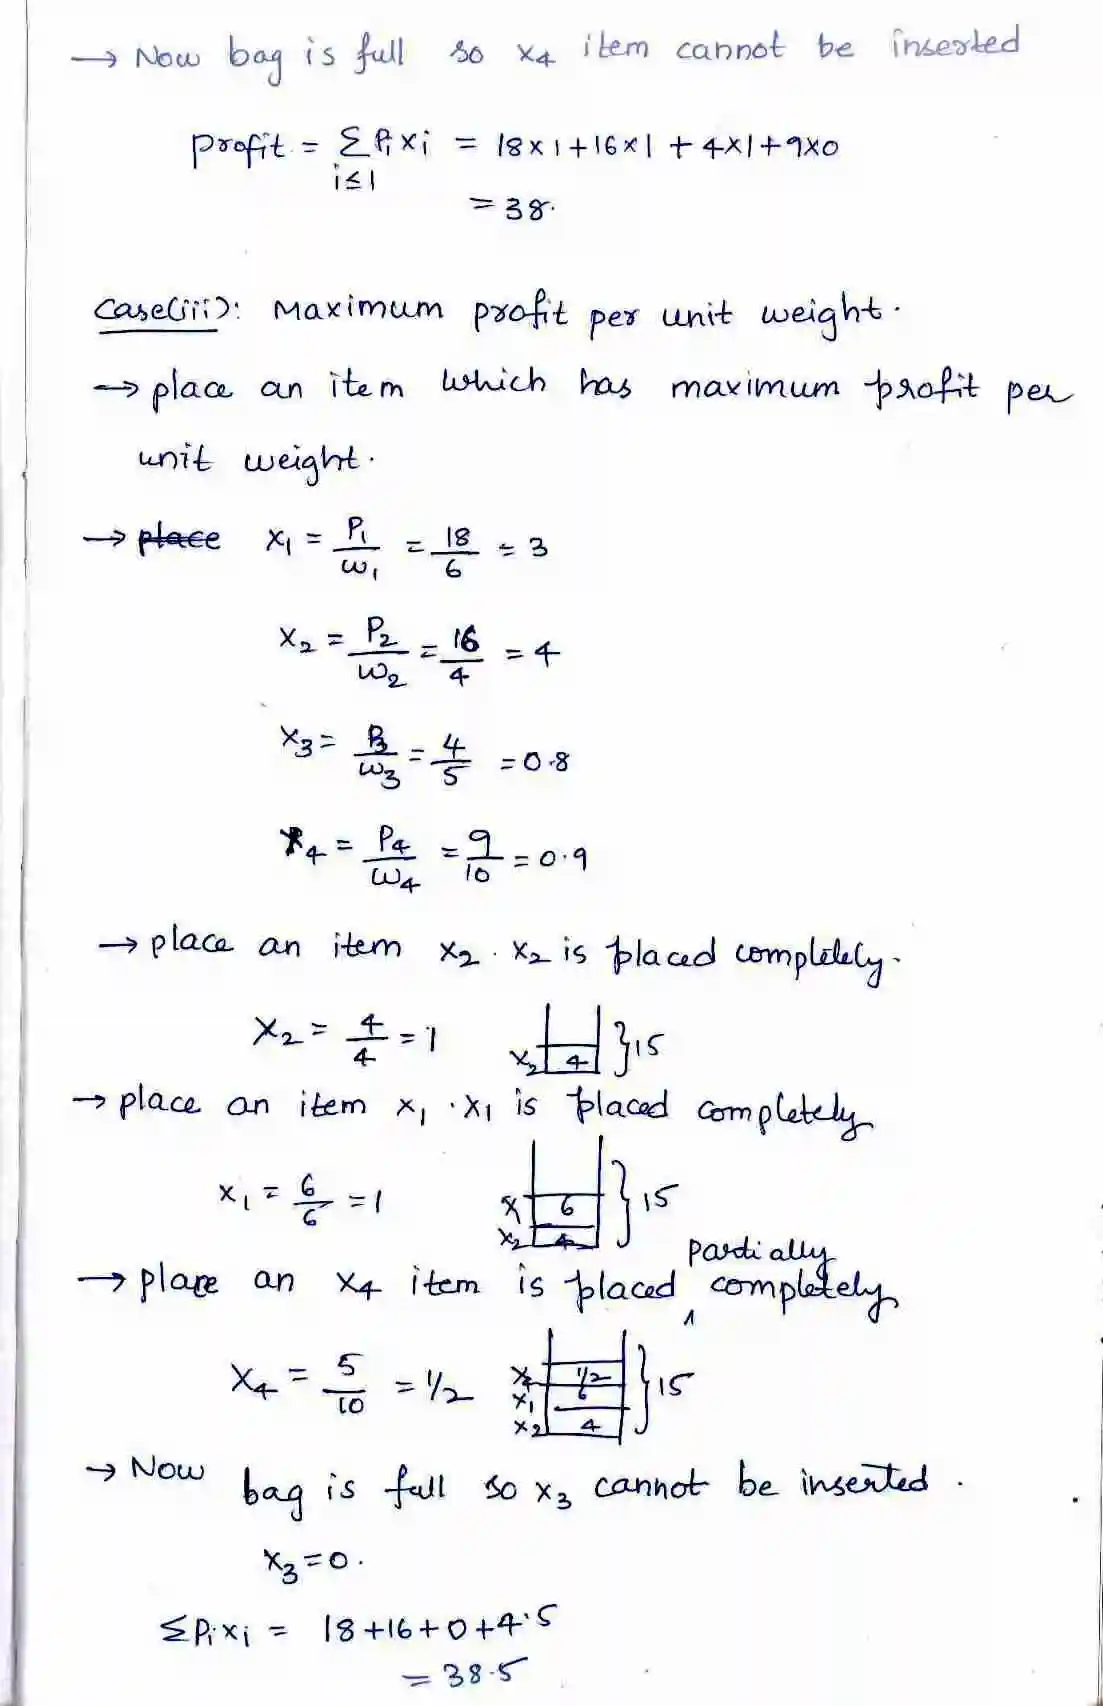 → Now bag is full so x4 item cannot be inserted
profit = Σ Pi xi = 18x1+16x1 + 4x1+9x0
i≤1
= 38.
Case(iii): Maximum profit per unit weight.
→ place an item which has maximum profit per
unit weight.
→ place x1 = P1/w1 = 18/6 = 3
x2 = P2/w2 = 16/4 = 4
x3 = P3/w3 = 4/5 = 0.8
x4 = P4/w4 = 9/10 = 0.9
→ place an item x2. x2 is placed completely.
x2 = 4/4 = 1 x2 4 }15
→ place an item x1. x1 is placed completely
x1 = 6/6 = 1 x1 6 }15
x2 4
partially
→ place an x4 item is placed ∧ completely
x4 = 5/10 = 1/2 x4 1/2 }15
x1 6
x2 4
→ Now bag is full so x3 cannot be inserted.
x3 = 0.
ΣPi xi = 18+16+0+4.5
= 38.5